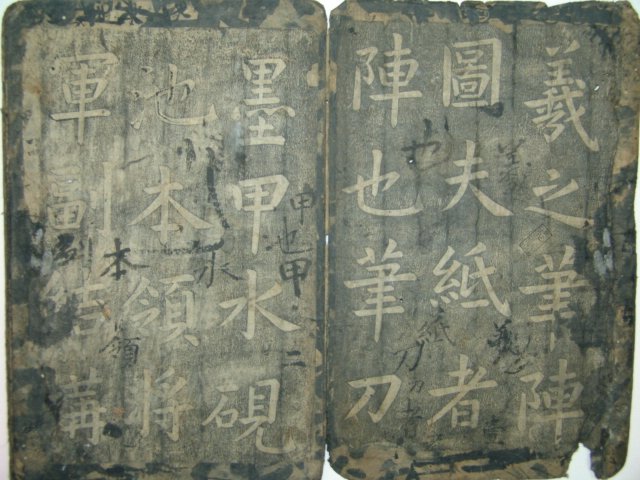 羲之筆陣
圖夫紙者
陣也筆刀
墨甲水硯
池本領將
軍副結構
也
紙
刀刀者
甲池甲
二
水
本
領